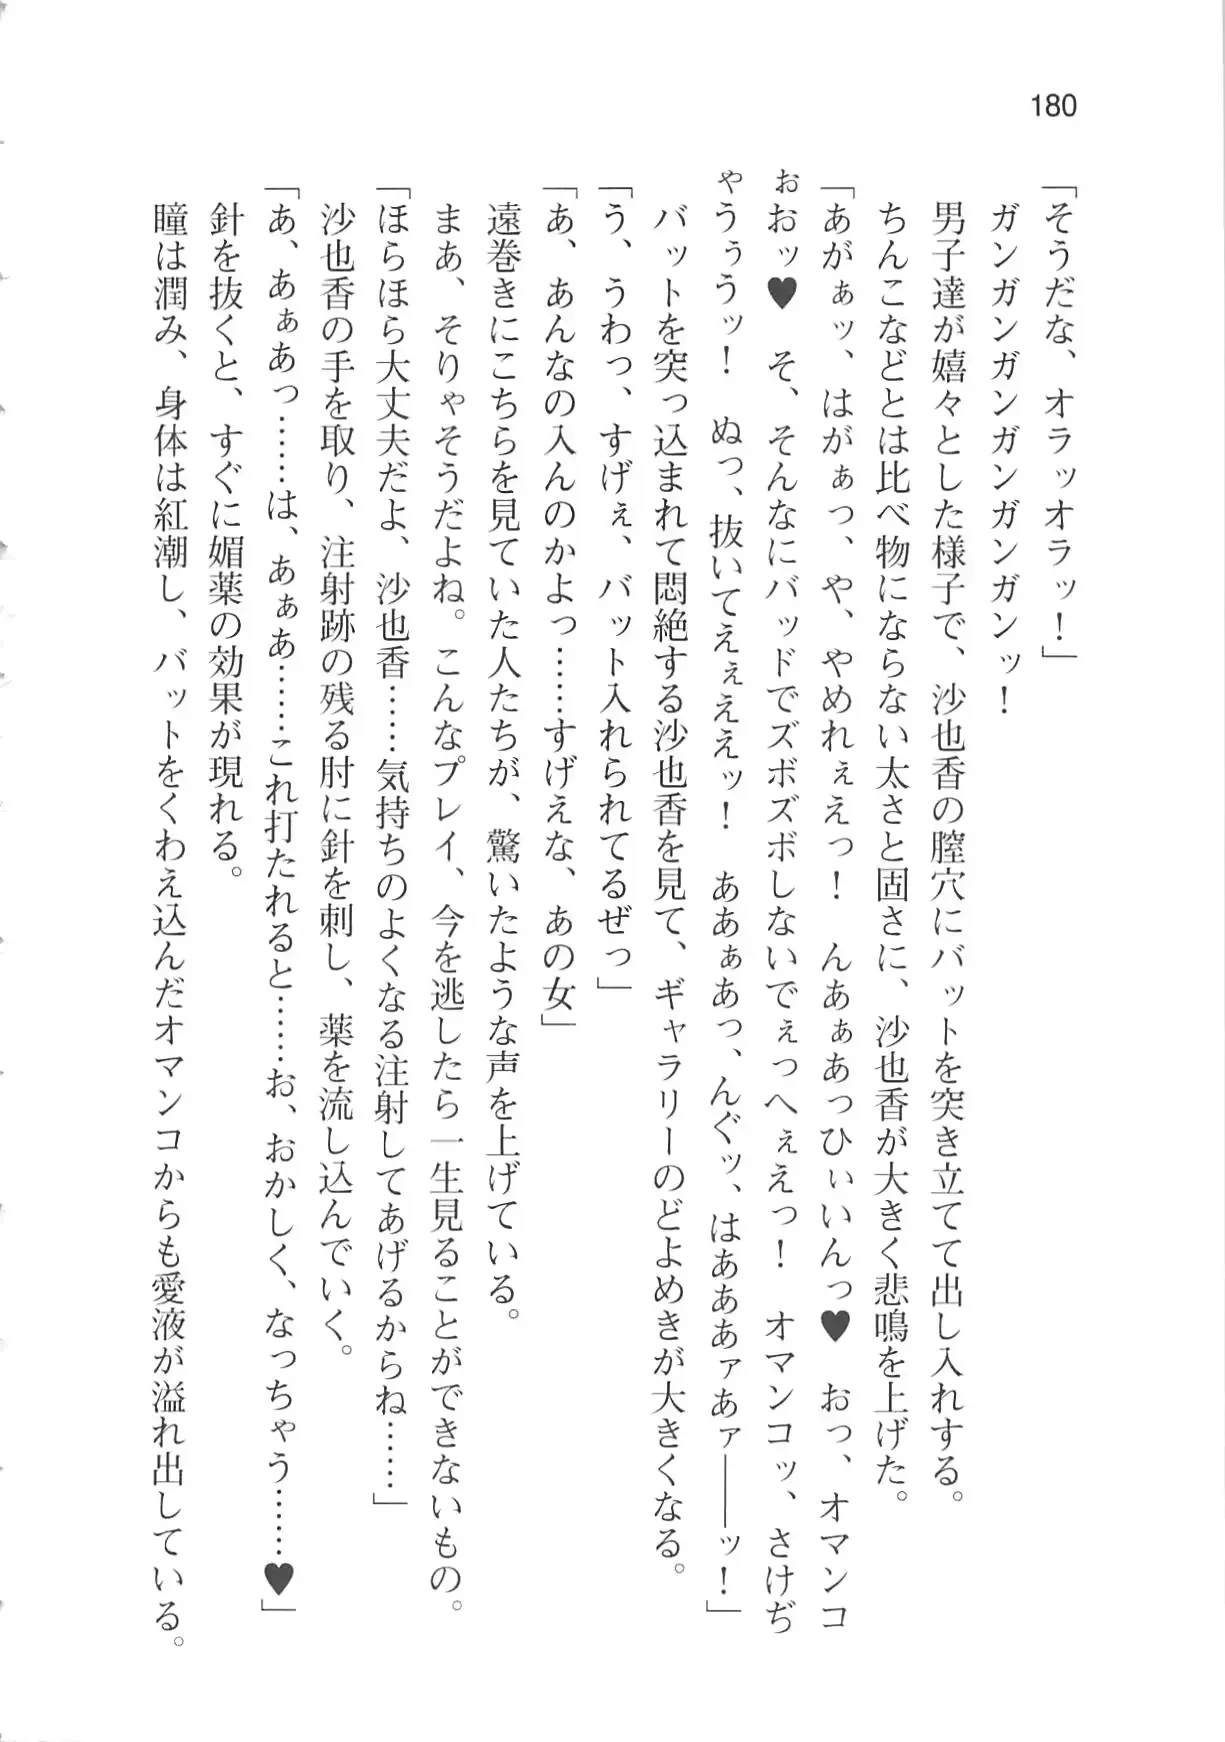 180
「そうだな、オラッオラッ！」
ガンガンガンガンガンガンッ！
男子達が嬉々とした様子で、沙也香の膣穴にバットを突き立てて出し入れする。
ちんこなどとは比べ物にならない太さと固さに、沙也香が大きく悲鳴を上げた。
「あがぁッ、はがぁっ、や、やめれぇえっ！　んあぁあっひぃいんっ♥　おっ、オマンコ
ぉおッ♥　そ、そんなにバッドでズボズボしないでぇっへぇえっ！　オマンコッ、さけぢ
ゃうぅうッ！　ぬっ、抜いてえぇええッ！　ああぁあっ、んぐッ、はあああァあァ――ッ！」
バットを突っ込まれて悶絶する沙也香を見て、ギャラリーのどよめきが大きくなる。
「う、うわっ、すげぇ、バット入れられてるぜっ」
「あ、あんなの入んのかよっ……すげえな、あの女」
遠巻きにこちらを見ていた人たちが、驚いたような声を上げている。
まあ、そりゃそうだよね。こんなプレイ、今を逃したら一生見ることができないもの。
「ほらほら大丈夫だよ、沙也香……気持ちのよくなる注射してあげるからね……」
沙也香の手を取り、注射跡の残る肘に針を刺し、薬を流し込んでいく。
「あ、あぁあっ……は、あぁあ……これ打たれると……お、おかしく、なっちゃう……♥」
針を抜くと、すぐに媚薬の効果が現れる。
瞳は潤み、身体は紅潮し、バットをくわえ込んだオマンコからも愛液が溢れ出している。